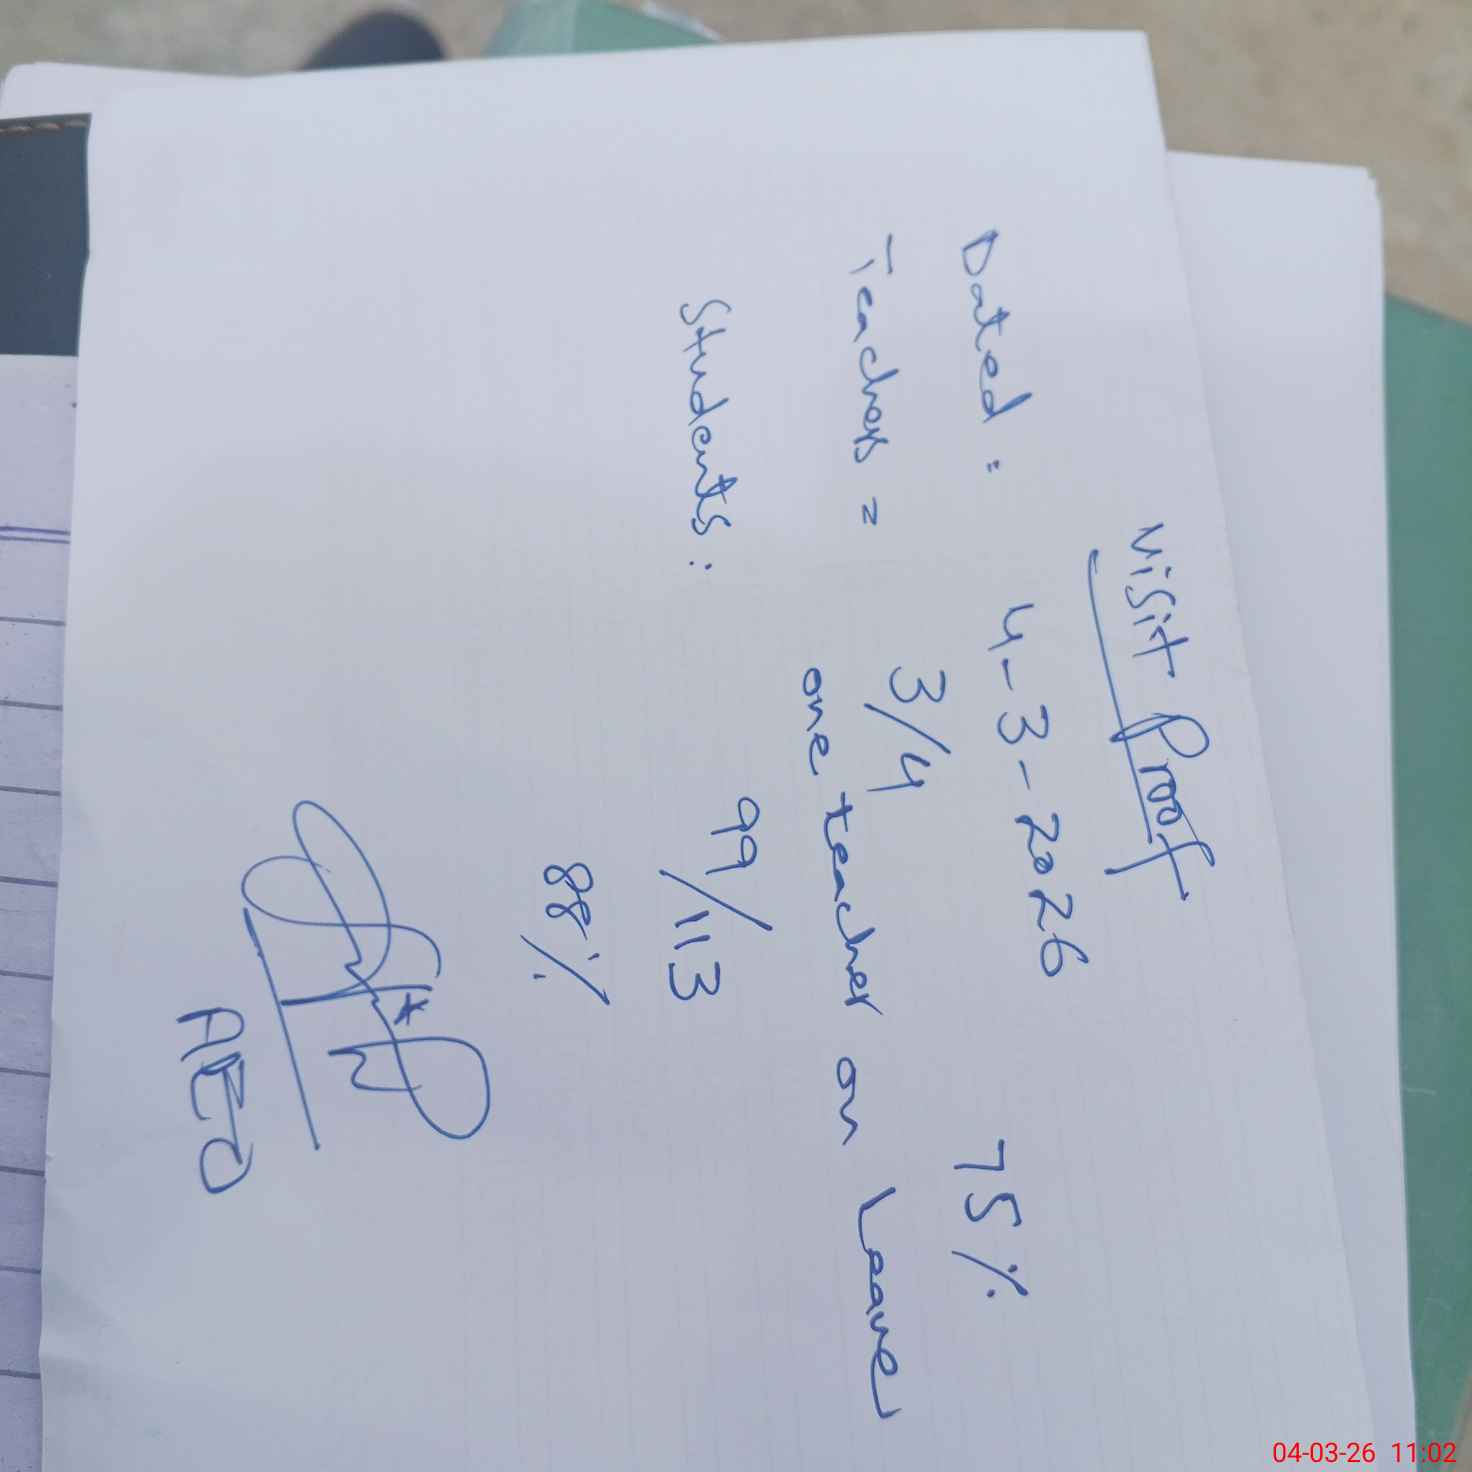 Visit Proof
Dated : 4-3-2026
Teachers = 3/4 75%
one teacher on Leave
Students : 99/113
88%
AEO
04-03-26 11:02